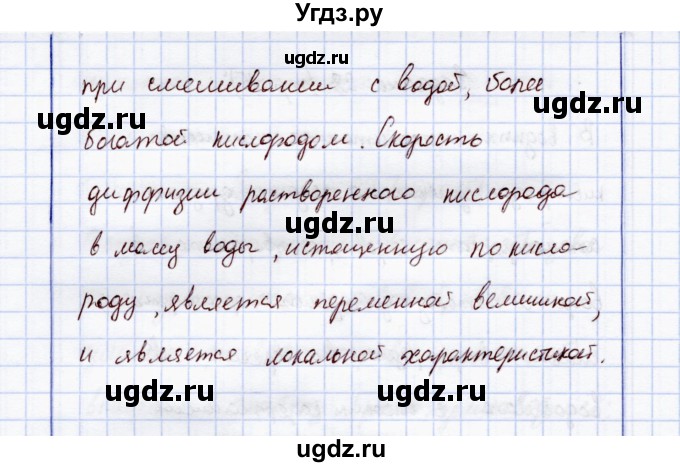 Угдз.ру
ugdz.ru
при смешивании с водой, более
ugdz.ru ugdz.ru
богатой кислородом. Скорость
диффузии растворенного кислорода
ugdz.ru
в массу воды, истощенную по кисло-
роду, является переменной величиной,
и является локальной характеристикой.
ugdz.ru ugdz.ru
ugdz.ru